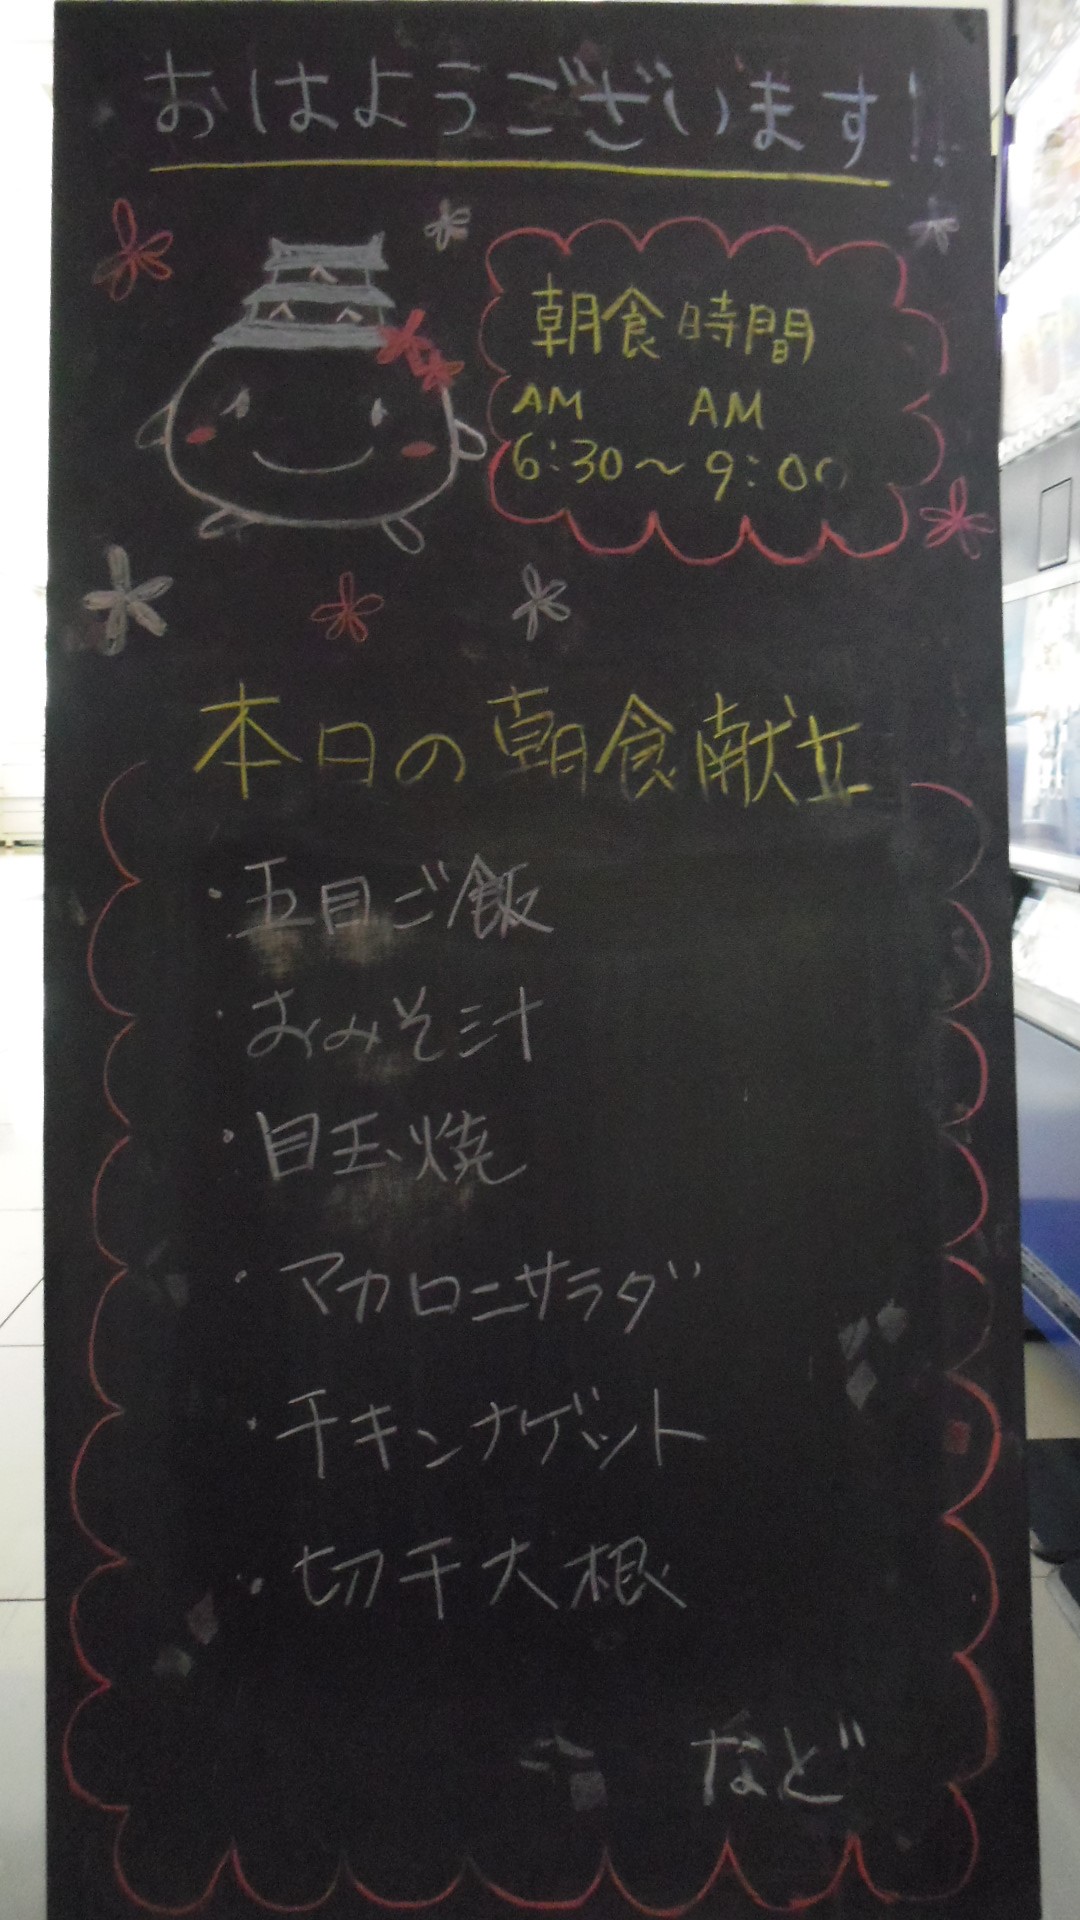 おはようございます!!
朝食時間
AM AM
6:30～9:00
本日の朝食献立
・五目ご飯
・おみそ汁
・目玉焼
・マカロニサラダ
・チキンナゲット
・切干大根
など